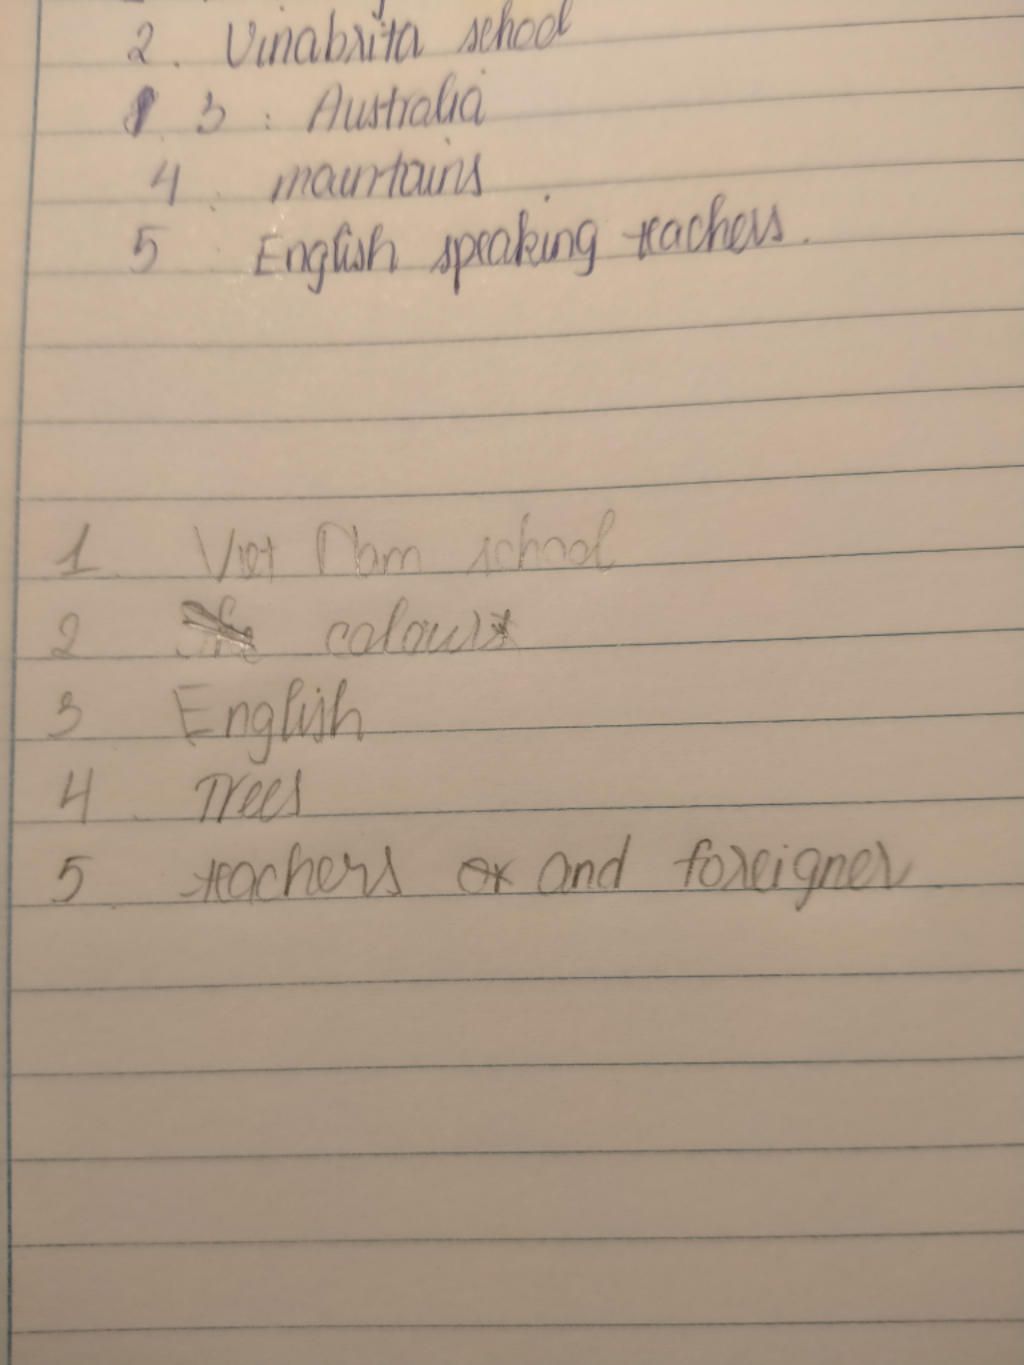 2. Vinabrita school
3: Australia
4. mauntains
5 English speaking teachers.
1. Viet Nam school
2 colours
3 English
4. Trees
5. teachers or and foreigner.